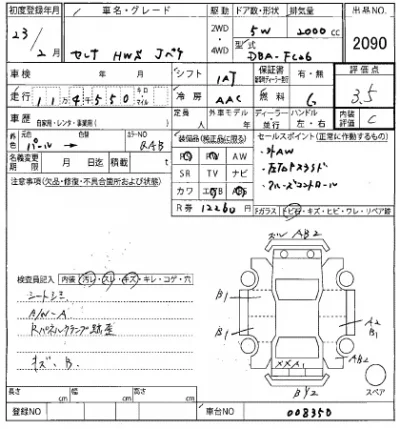 初度登録年月 車名・グレード 駆動 ドア数・形状 排気量 出品NO.
23/2月 セレナ HWS Jパケ 2WD・4WD 5W 2000cc 2090
型式 DBA-FC26
車検 年 月 シフト IAT 保証書 有・無 評価点
走行 114550 キロ マイル 冷房 AAC 燃料 G 3.5
車歴 自家用・レンタ・事業用( ) 定員 人 外車モデル 年 ディーラー 並行 ハンドル 左・右 内装評価 C
色 元色 パール→ 色替 カラーNO QAB
装備品(純正品に限る) セールスポイント(正常に作動するもの)
PS PW AW ・外AW
名義変更期限 月 日迄 積載 t SR TV ナビ ・左右Pスライド
注意事項(欠品・修復・不具合箇所および状態) カワ エアB ABS ・クルーズコントロール
R券 12260円
Fガラス トビ石・キズ・ヒビ・ワレ・リペア跡
AB2
検査員記入 内装 汚レ・スレ・キズ・キレ・コゲ・穴
シートシミ
A/W-A
Rパネルクランプ跡有
キズ、B.
B1
B1
A2
B1
AB2
XXA1
BY2
スペア
長さ cm 幅 cm 高さ cm
登録NO 車台NO 008350